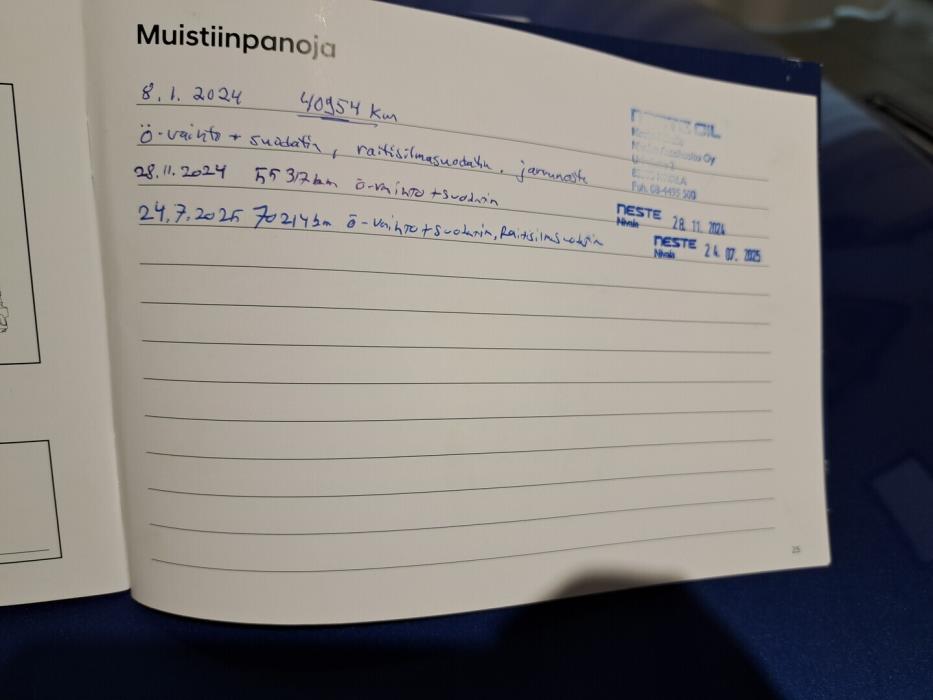 Muistiinpanoja
8.1.2024 40954 km
ö-vaihto + suodatin, raitisilmasuodatin, jarruneste
28.11.2024 55317 km ö-vaihto + suodatin
24.7.2025 70214 km ö-vaihto + suodatin, Raitisilmasuodatin
OIL
Oy
Puh. 08-4495 500
NESTE
Nivala 28. 11. 2024
NESTE
Nivala 24. 07. 2025
25